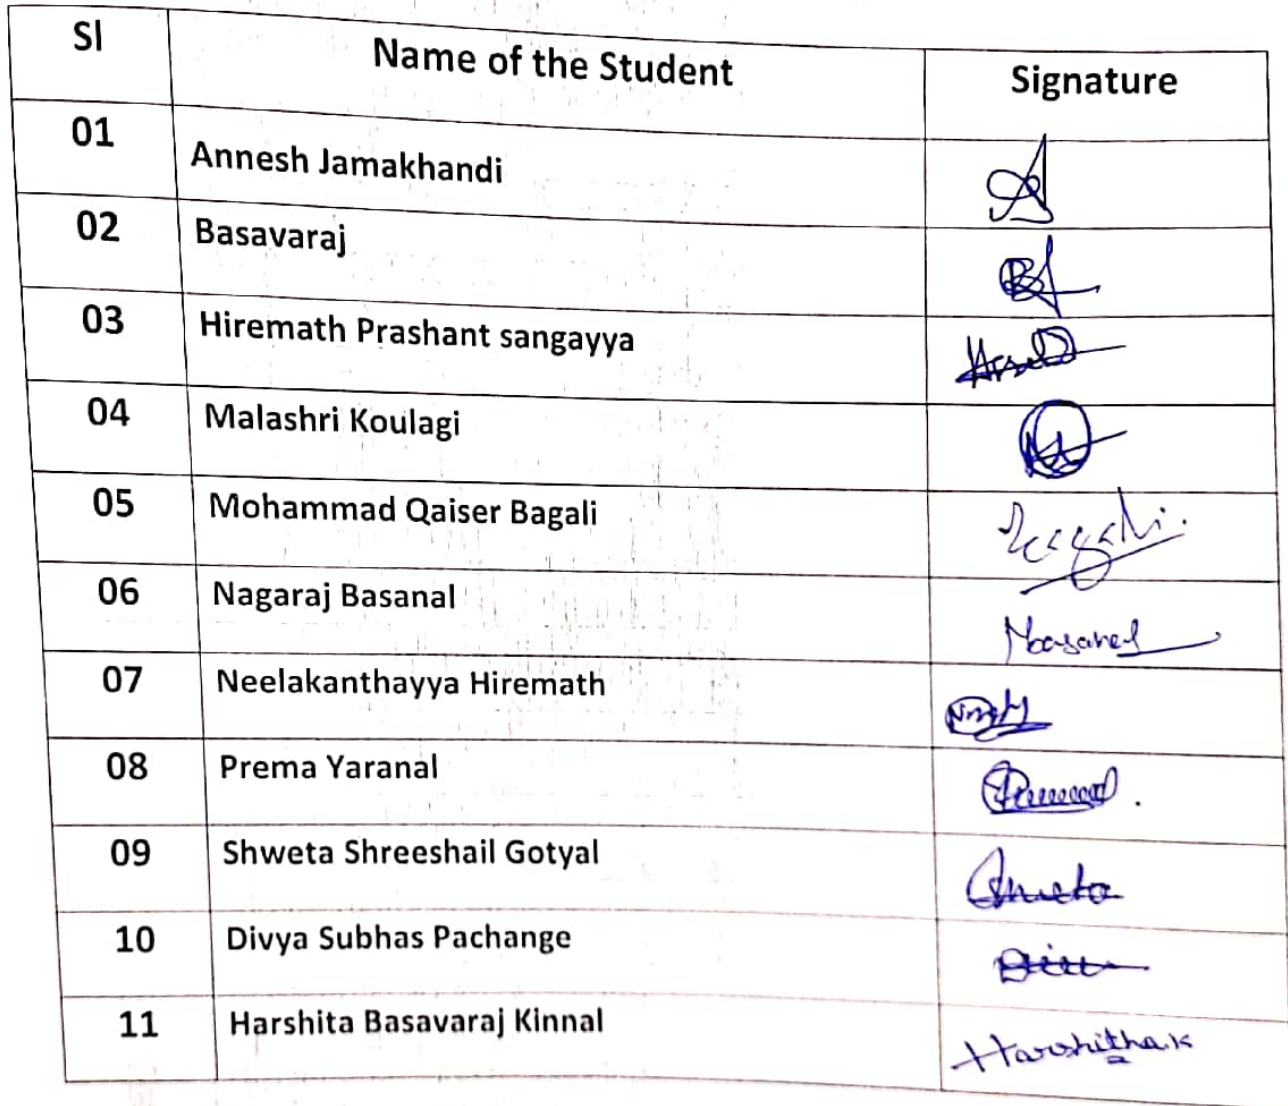 Sl Name of the Student Signature
01 Annesh Jamakhandi
02 Basavaraj
03 Hiremath Prashant sangayya
04 Malashri Koulagi
05 Mohammad Qaiser Bagali
06 Nagaraj Basanal
07 Neelakanthayya Hiremath
08 Prema Yaranal
09 Shweta Shreeshail Gotyal Shweta
10 Divya Subhas Pachange
11 Harshita Basavaraj Kinnal Harshitha.K